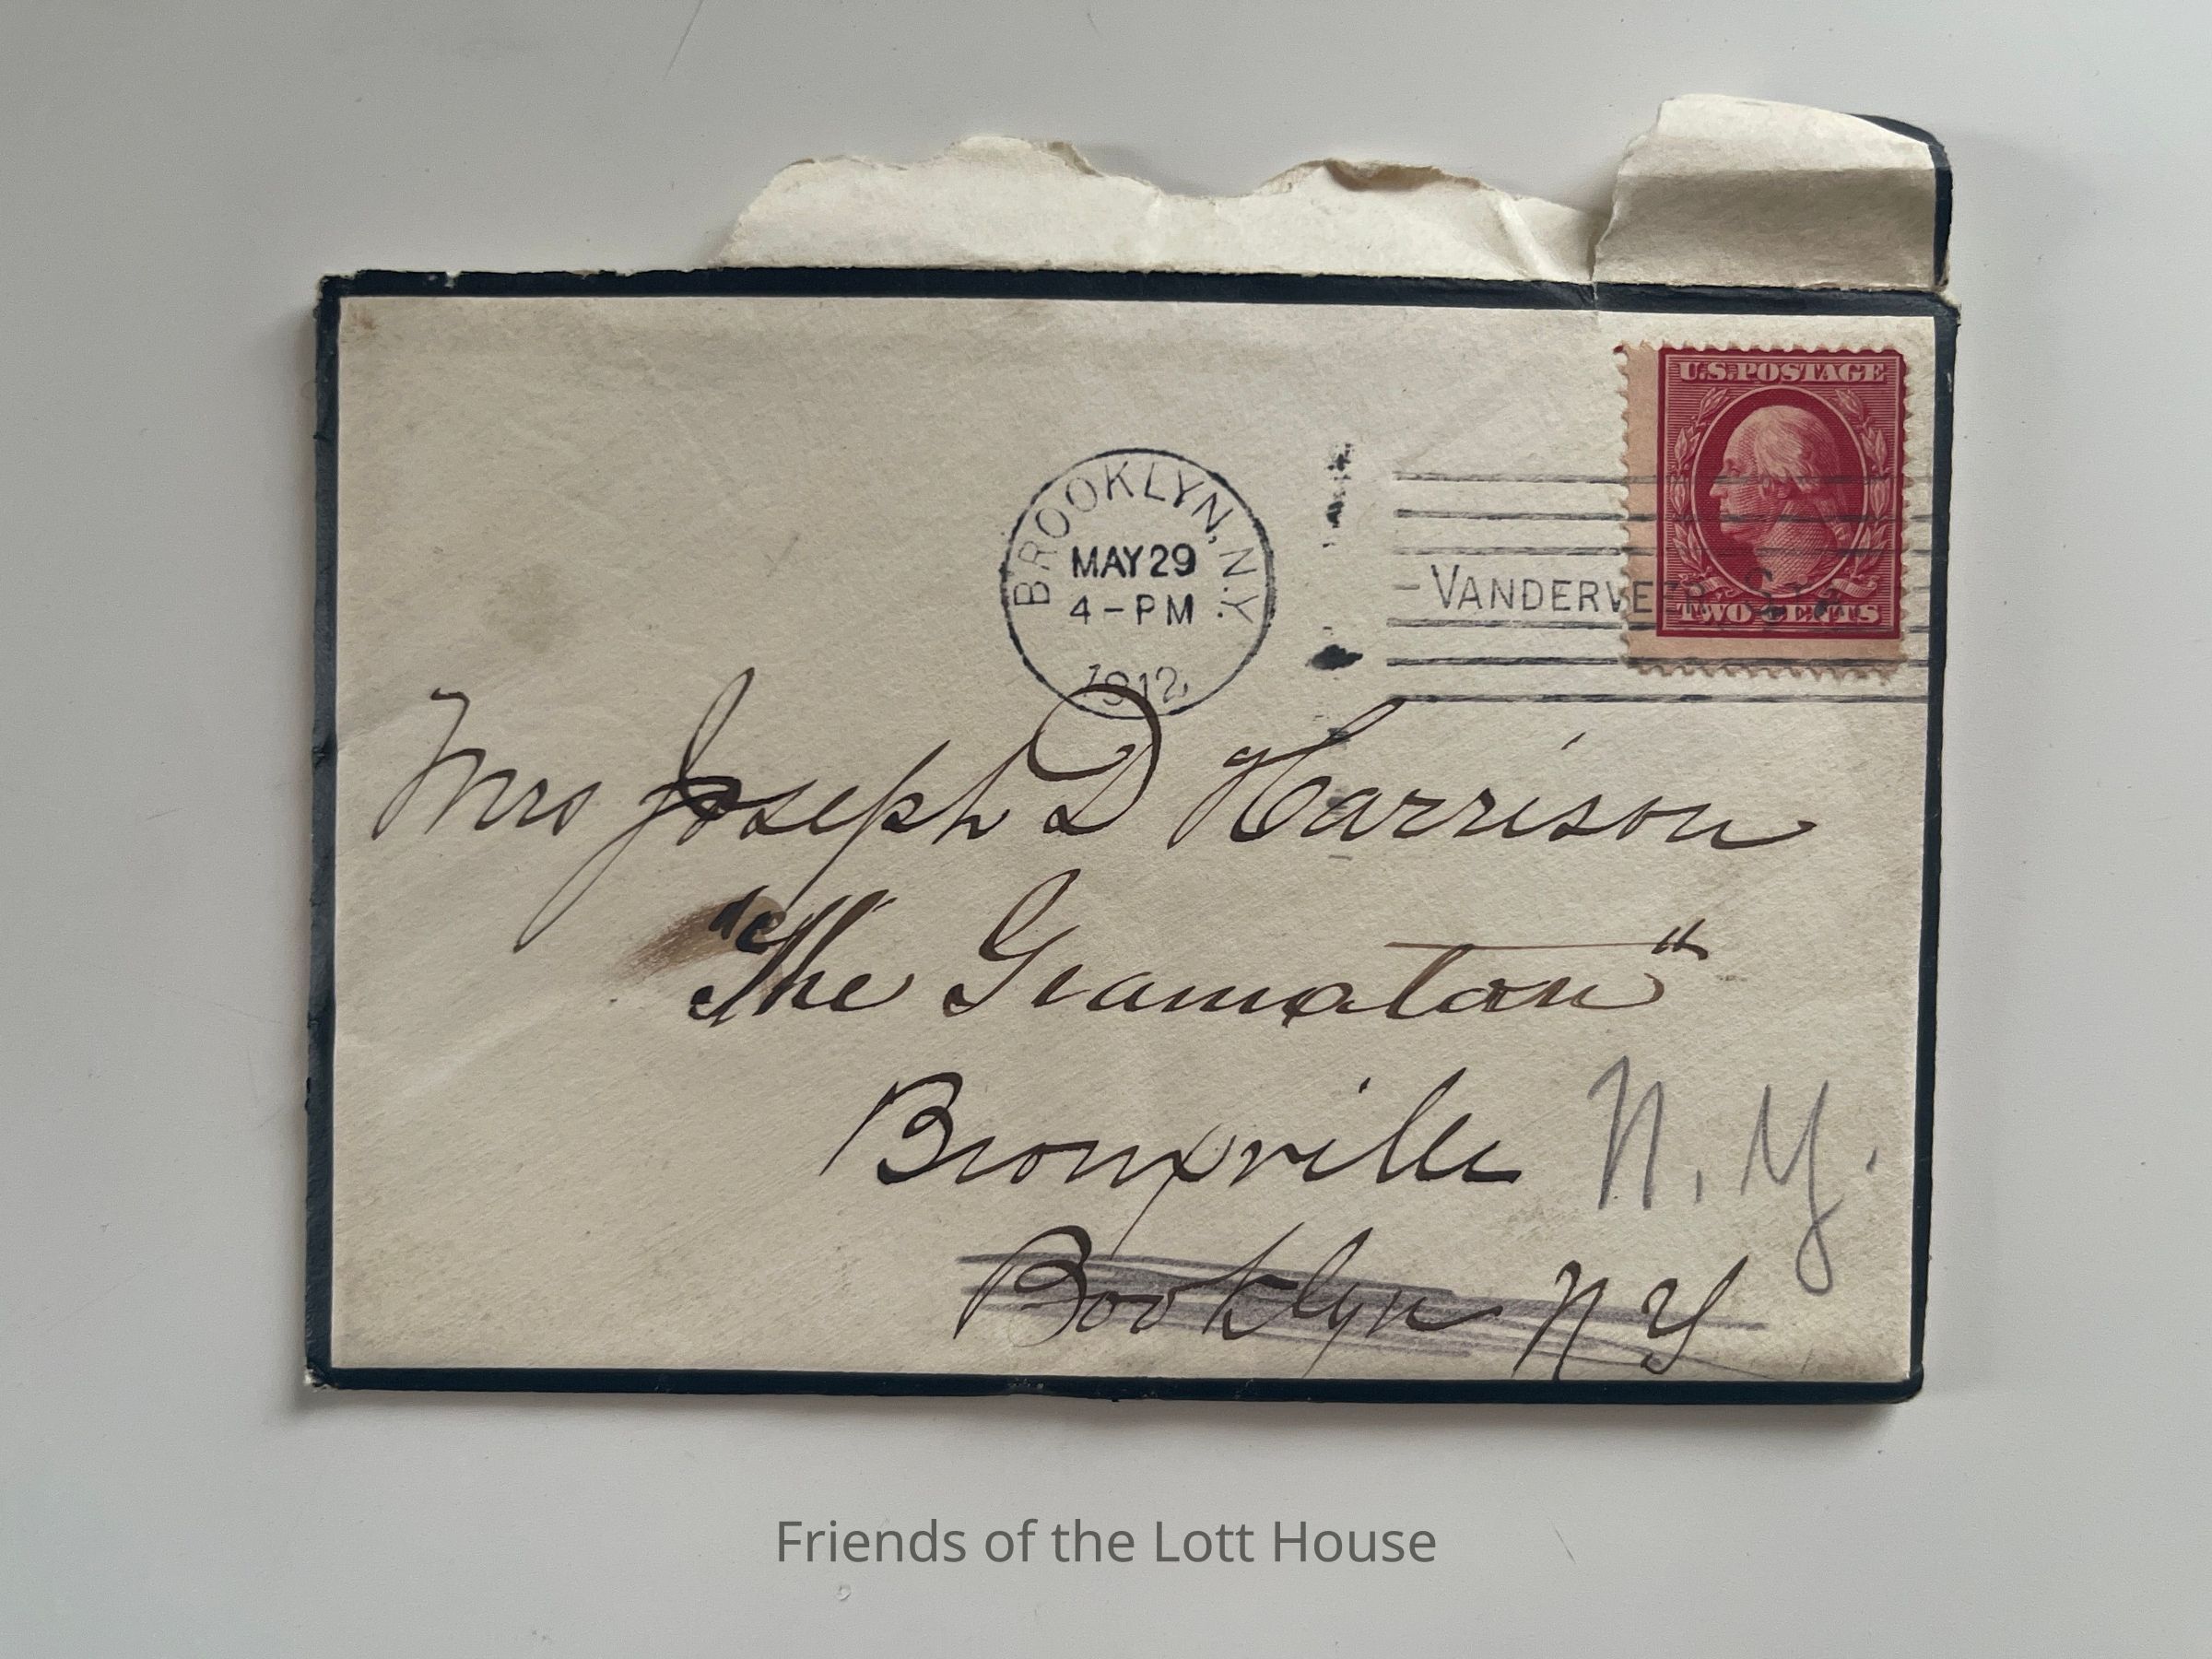 U.S. POSTAGE
TWO CENTS
BROOKLYN, N.Y.
MAY 29
4-PM
1912
VANDERVEER STA.
Mrs Joseph D Harrison
"The Gramatan"
Bronxville N.Y.
Booklyn N Y
Friends of the Lott House